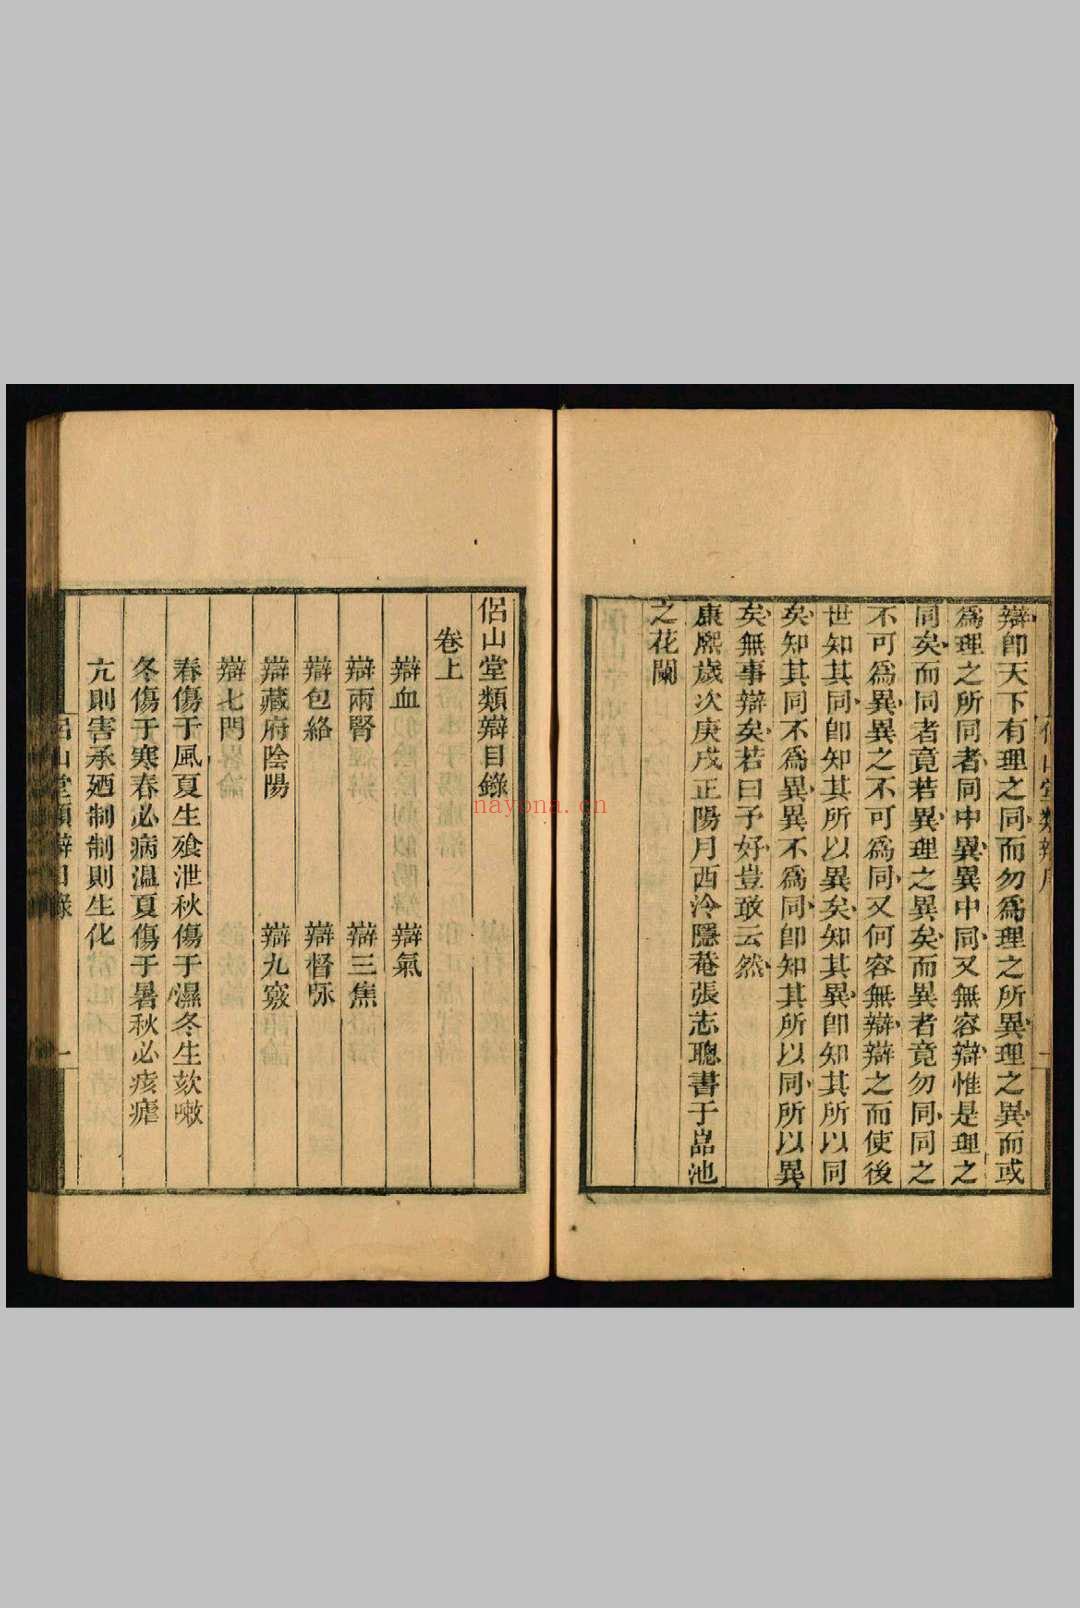 辯卽天下有理之同而勿爲理之所異理之異而或
爲理之所同者同中異異中同又無容辯惟是理之
同矣而同者竟若異理之異矣而異者竟勿同同之
不可爲異異之不可爲同又何容無辯辯之而使後
世知其同卽知其所以異矣知其異卽知其所以同
矣知其同不爲異異不爲同卽知其所以同所以異
矣無事辯矣若曰予好豈敢云然
康熈歲次庚戌正陽月西泠隱菴張志聰書于
池
之花闌
侶山堂類辯目錄
卷上
辯血
辯氣
辯兩腎
辯三焦
辯包絡
辯督脉
辯藏府陰陽
辯九竅
辯七門
春傷于風夏生飱泄秋傷于濕冬生欬嗽
冬傷于寒春必病温夏傷于暑秋必痎瘧
亢則害承廼制制則生化
侶山堂類辯目錄
一
nayona.cn